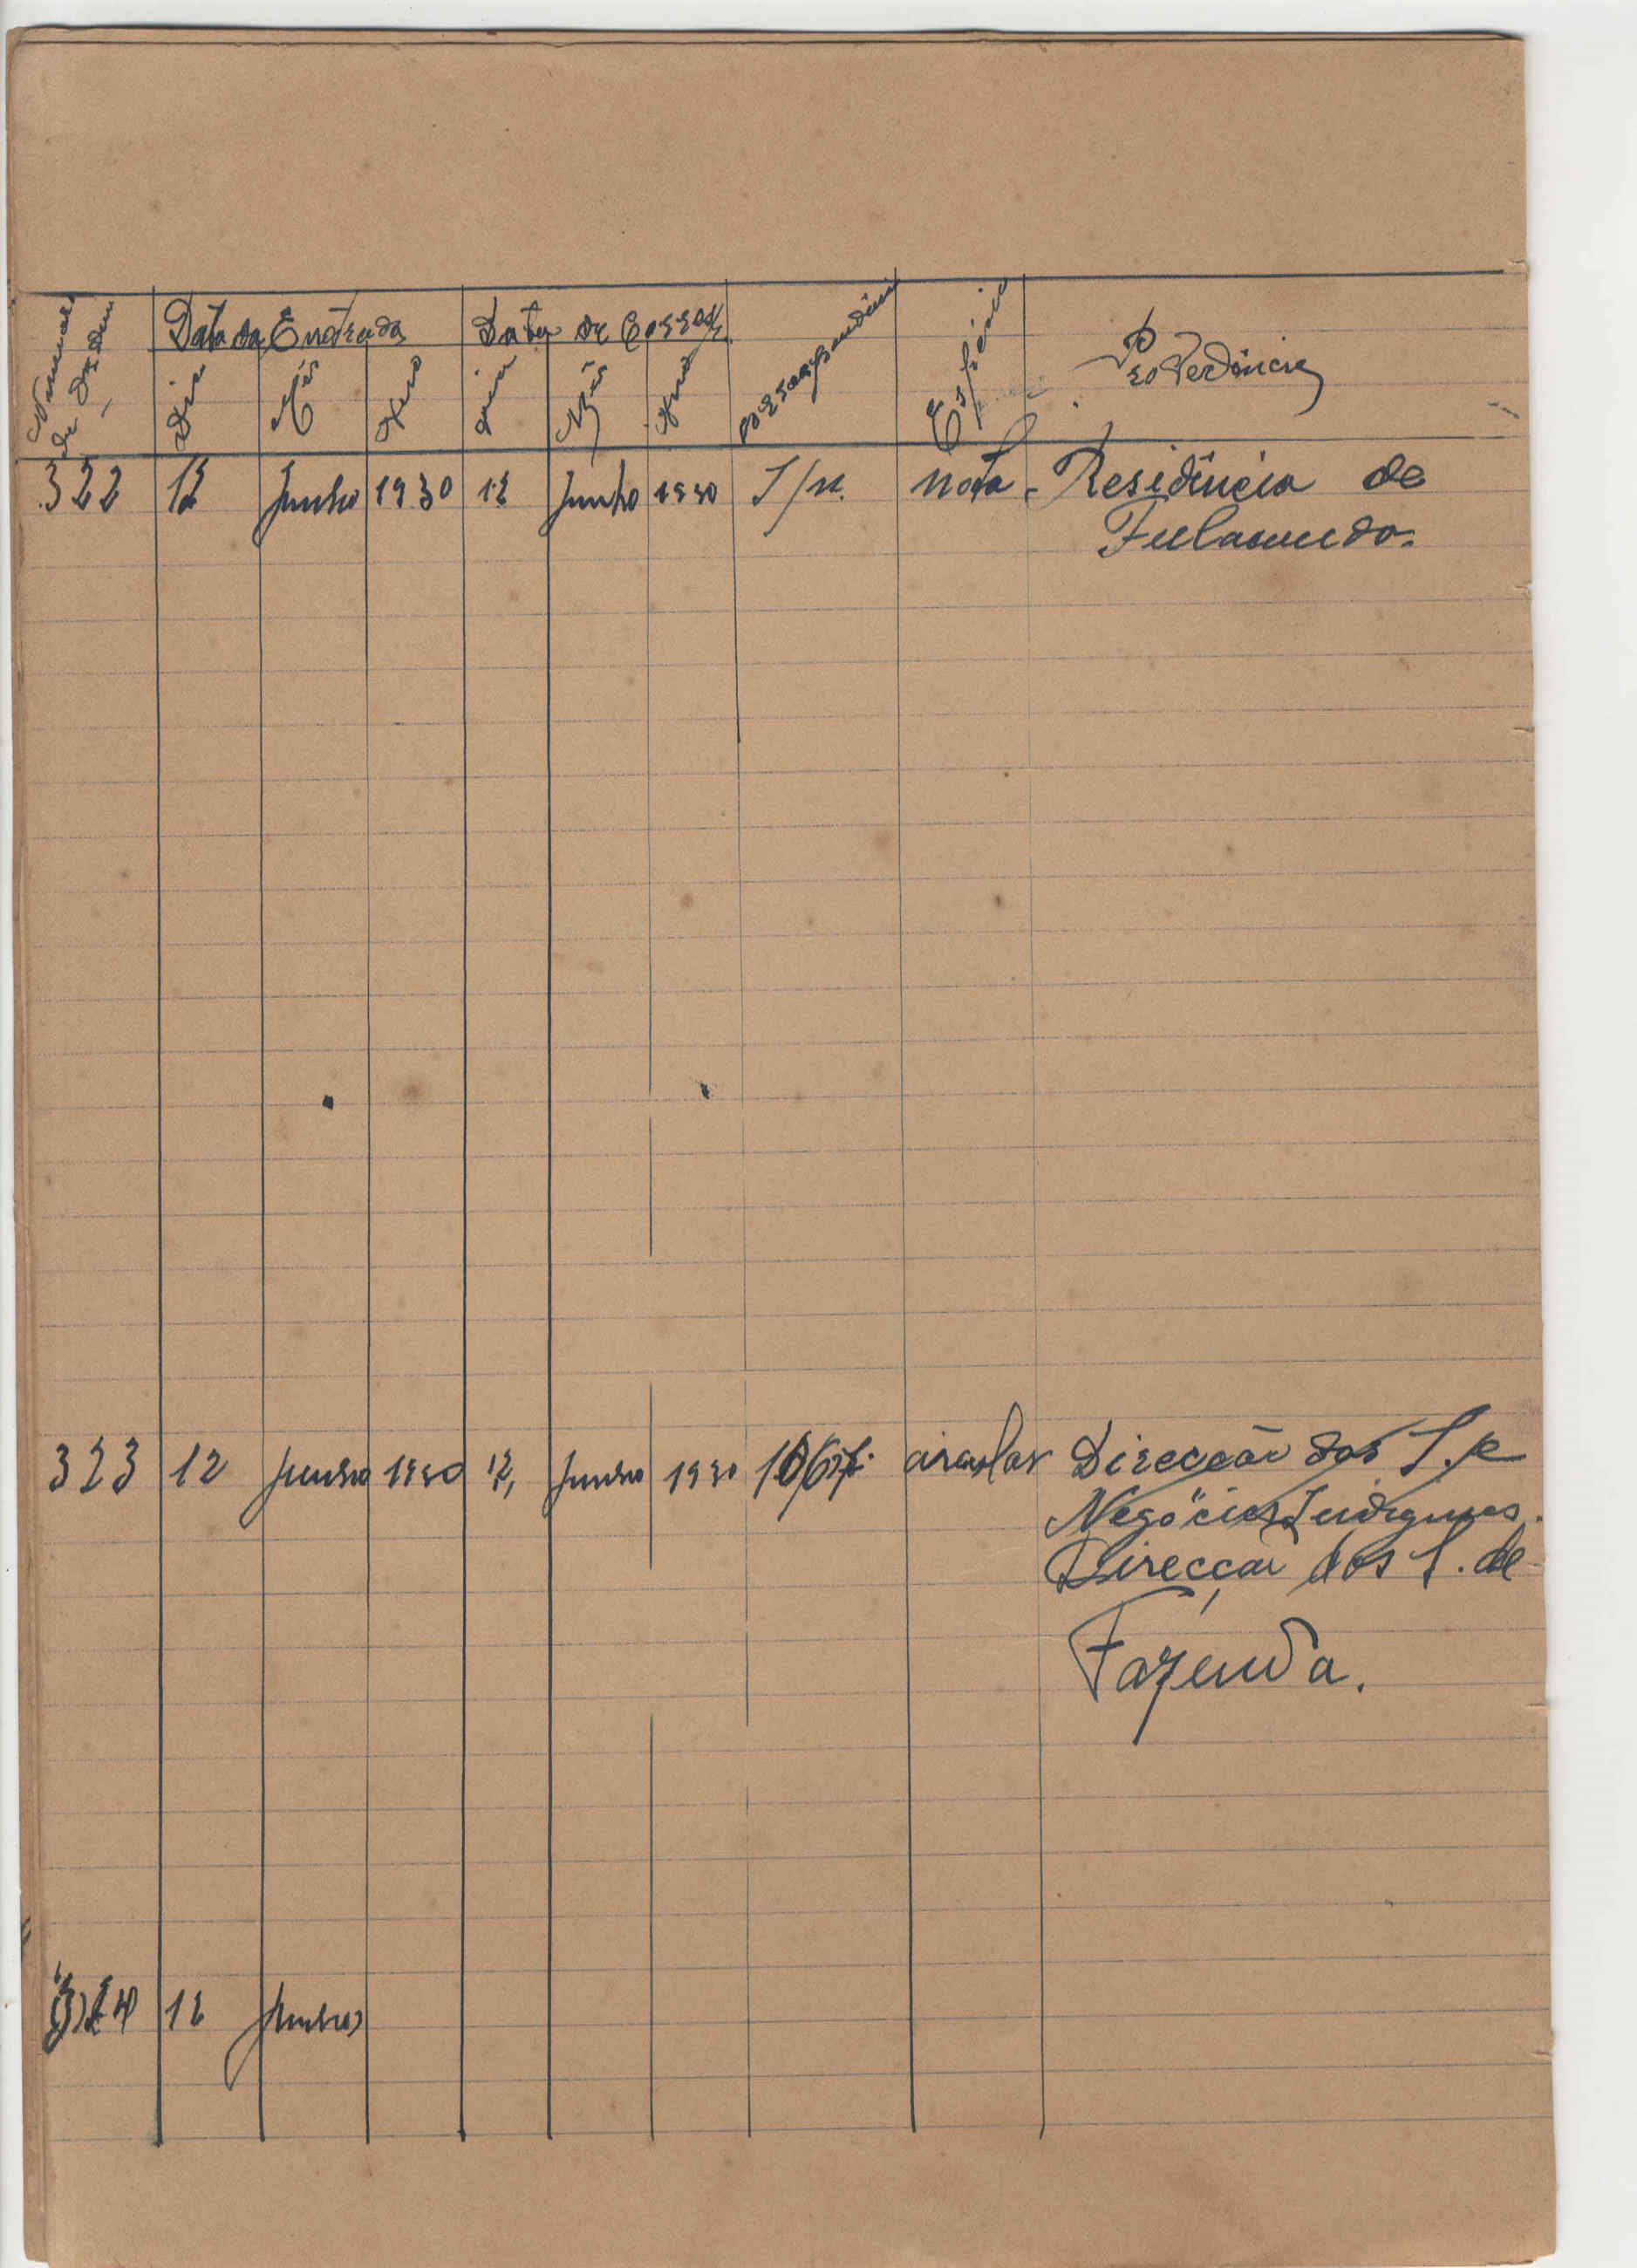 Numero de Ordem
Data da Entrada
Data da
Dia Mês Ano Dia Mês Ano
Espécie
Procedência
322 12 Junho 1930 12 Junho 1930 S/n. Nota Residência de
Fulacunda.
323 12 Junho 1930 12, Junho 1930 circular Direcção dos S. e
Negócios Indigenas.
Direcção dos S. de
Fazenda.
324 12 Junho